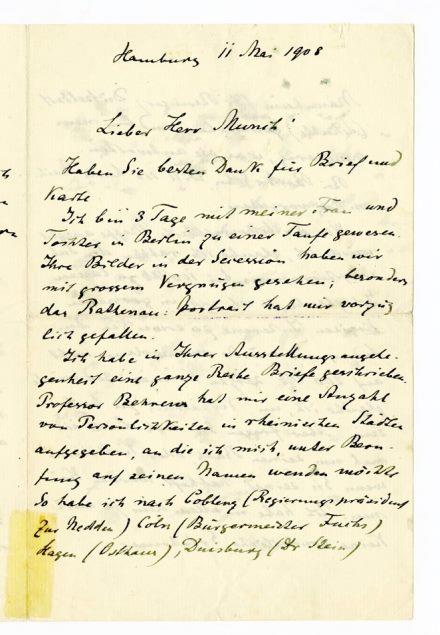 Hamburg 11 Mai 1908
Lieber Herr Munch!
Haben Sie besten Dank für Brief und
Karte
Ich bin 3 Tage mit meiner Frau und
Tochter in Berlin zu einer Taufe gewesen.
Ihre Bilder in der Secession haben wir
mit grossem Vergnügen gesehen; besonders
das Rathenau: portrait hat mir vorzüg
lich gefallen.
Ich habe in Ihrer Ausstellungsangele-
genheit eine ganze Reihe Briefe geschrieben.
Professor Behrens hat mir eine Anzahl
von Persönlichkeiten in rheinischen Städten
aufgegeben, an die ich mich, unter Beru-
fung auf seinen Namen wenden möchte
So habe ich nach Coblenz (Regierungspräsident
Zur Nedden) Cöln (Bürgermeister Fuchs)
Hagen (Osthaus), Duisburg (Dr Stein)